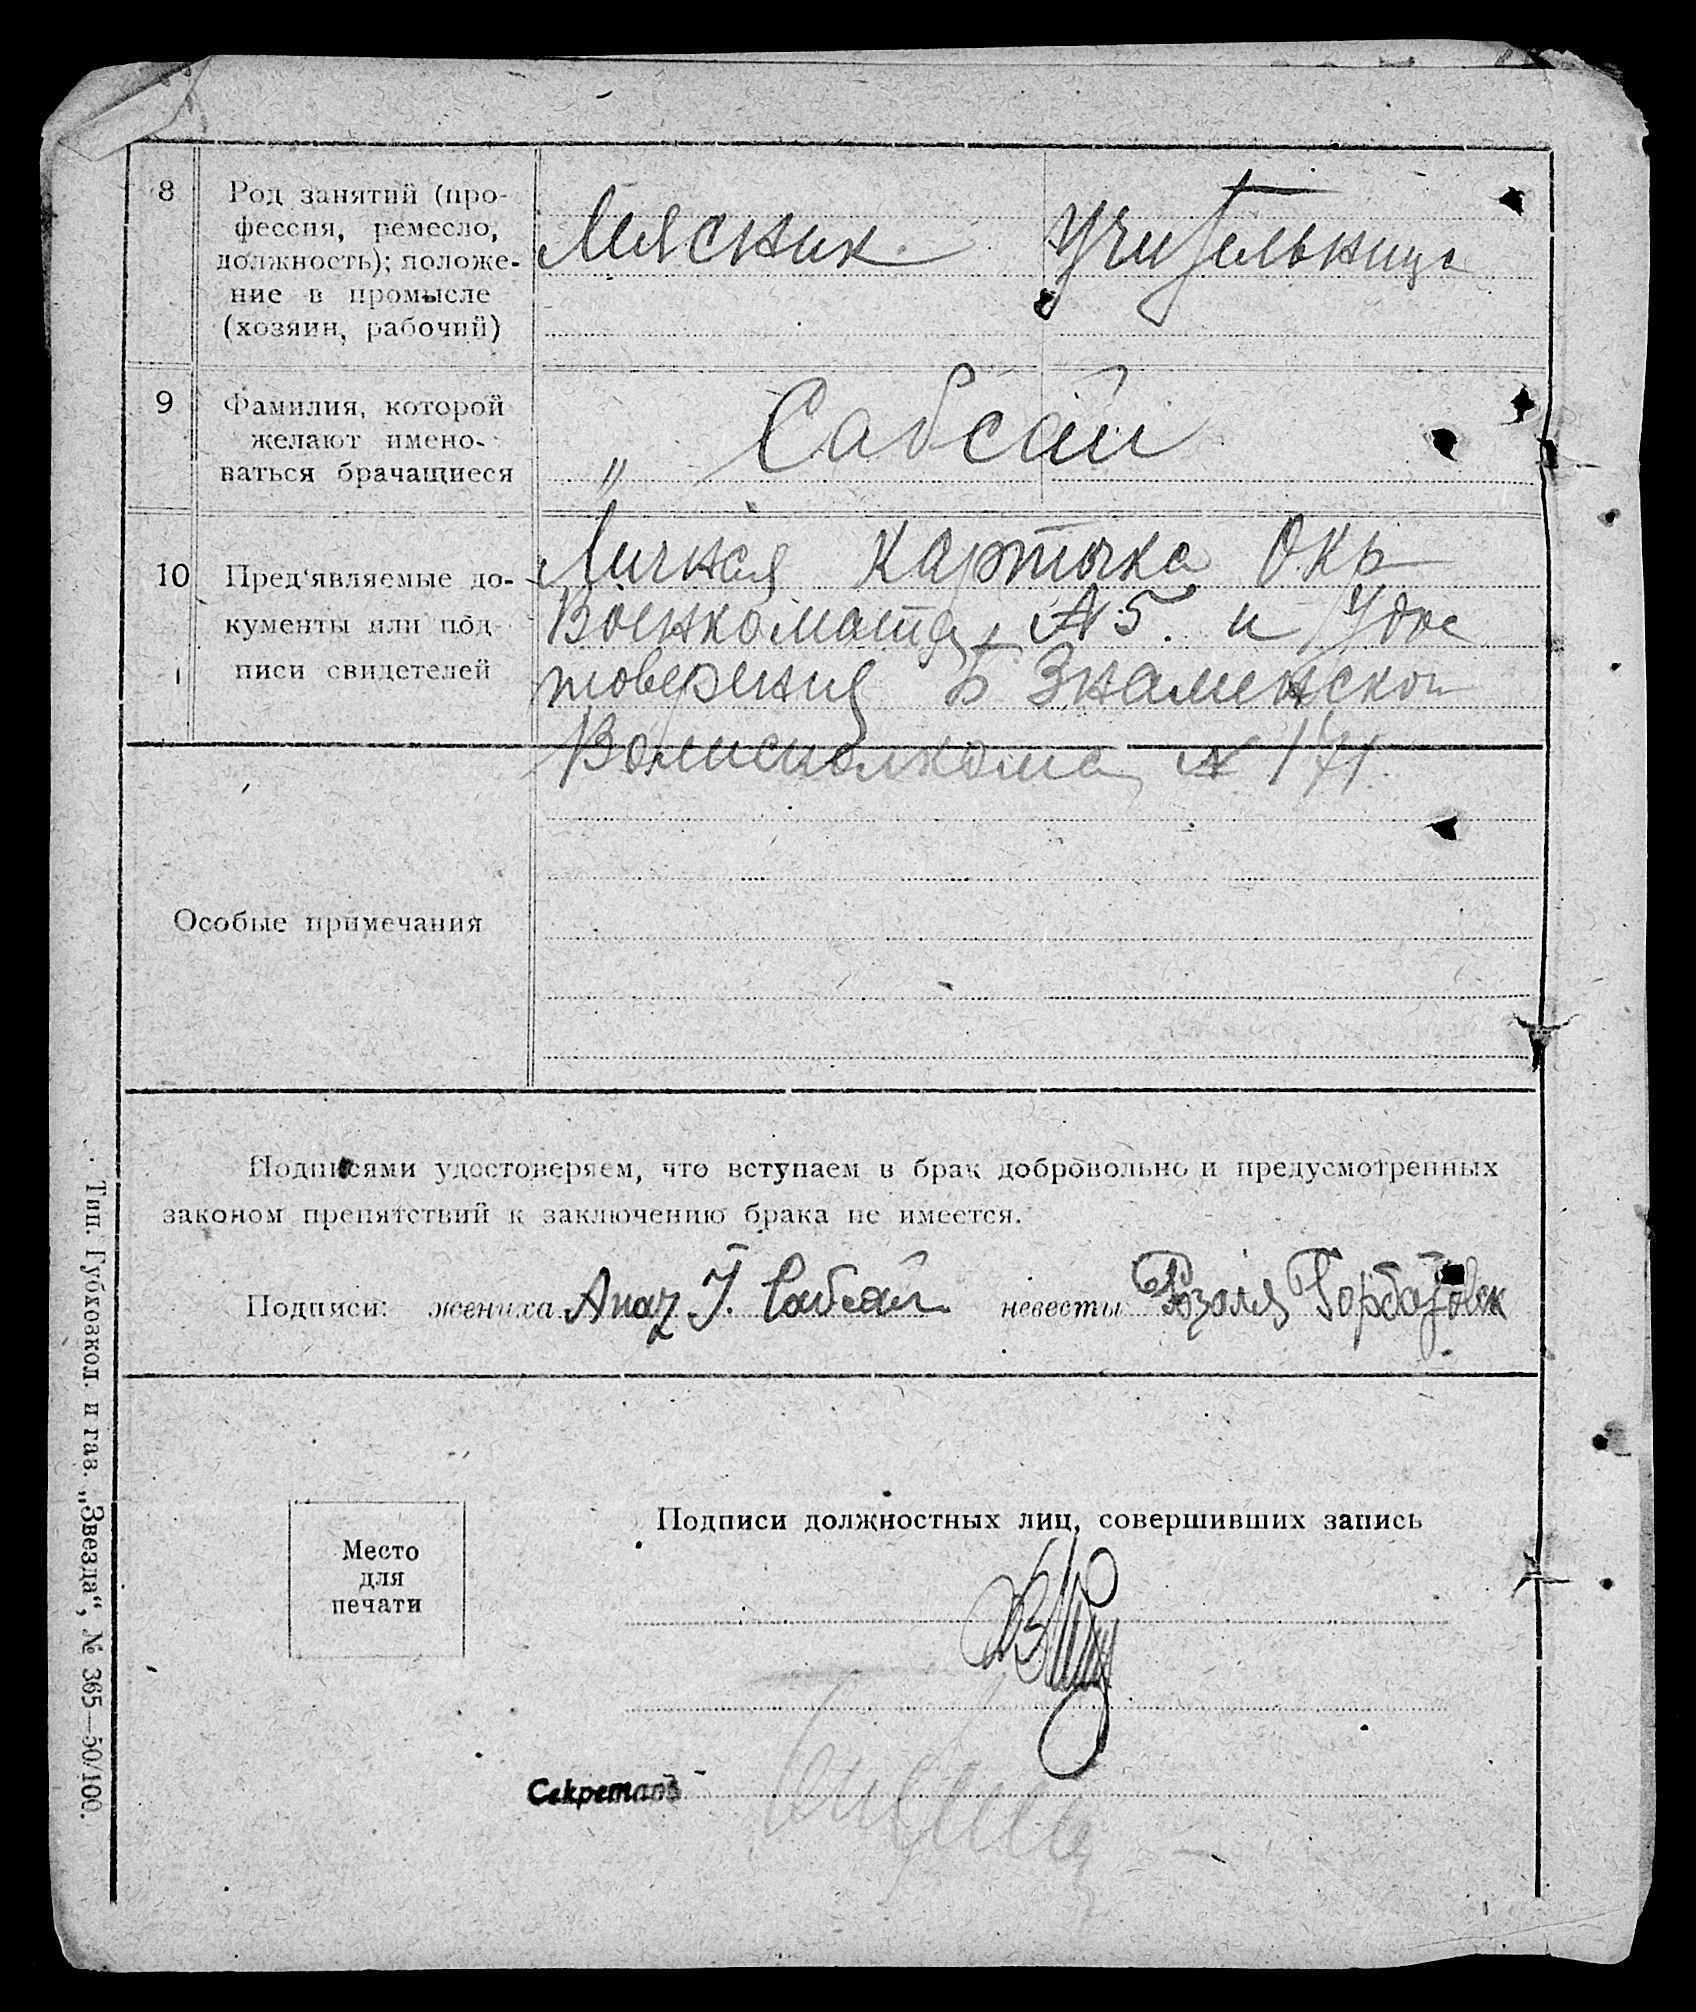 8 Род занятий (про-
фессия, ремесло,
должность); положе-
ние в промысле
(хозяин, рабочий)
Мясник Учительница
9 Фамилия, которой
желают имено-
ваться брачащиеся
„ Сабсай
10 Пред‘являемые до-
кументы или под
писи свидетелей
Личная карточка Окр
Военкомата № 5. и Удос
товерения Б Знаменской
Волисполкома № 171.
Особые примечания
Подписями удостоверяем, что вступаем в брак добровольно и предусмотренных
законом препятствий к заключению брака не имеется.
Подписи: жениха Сабсай невесты Розалия
Подписи должностных лиц, совершивших запись
Место
для
печати
Секретарь
Тип. Губхозкол. и газ. „Звезда“, № 365—50/100.